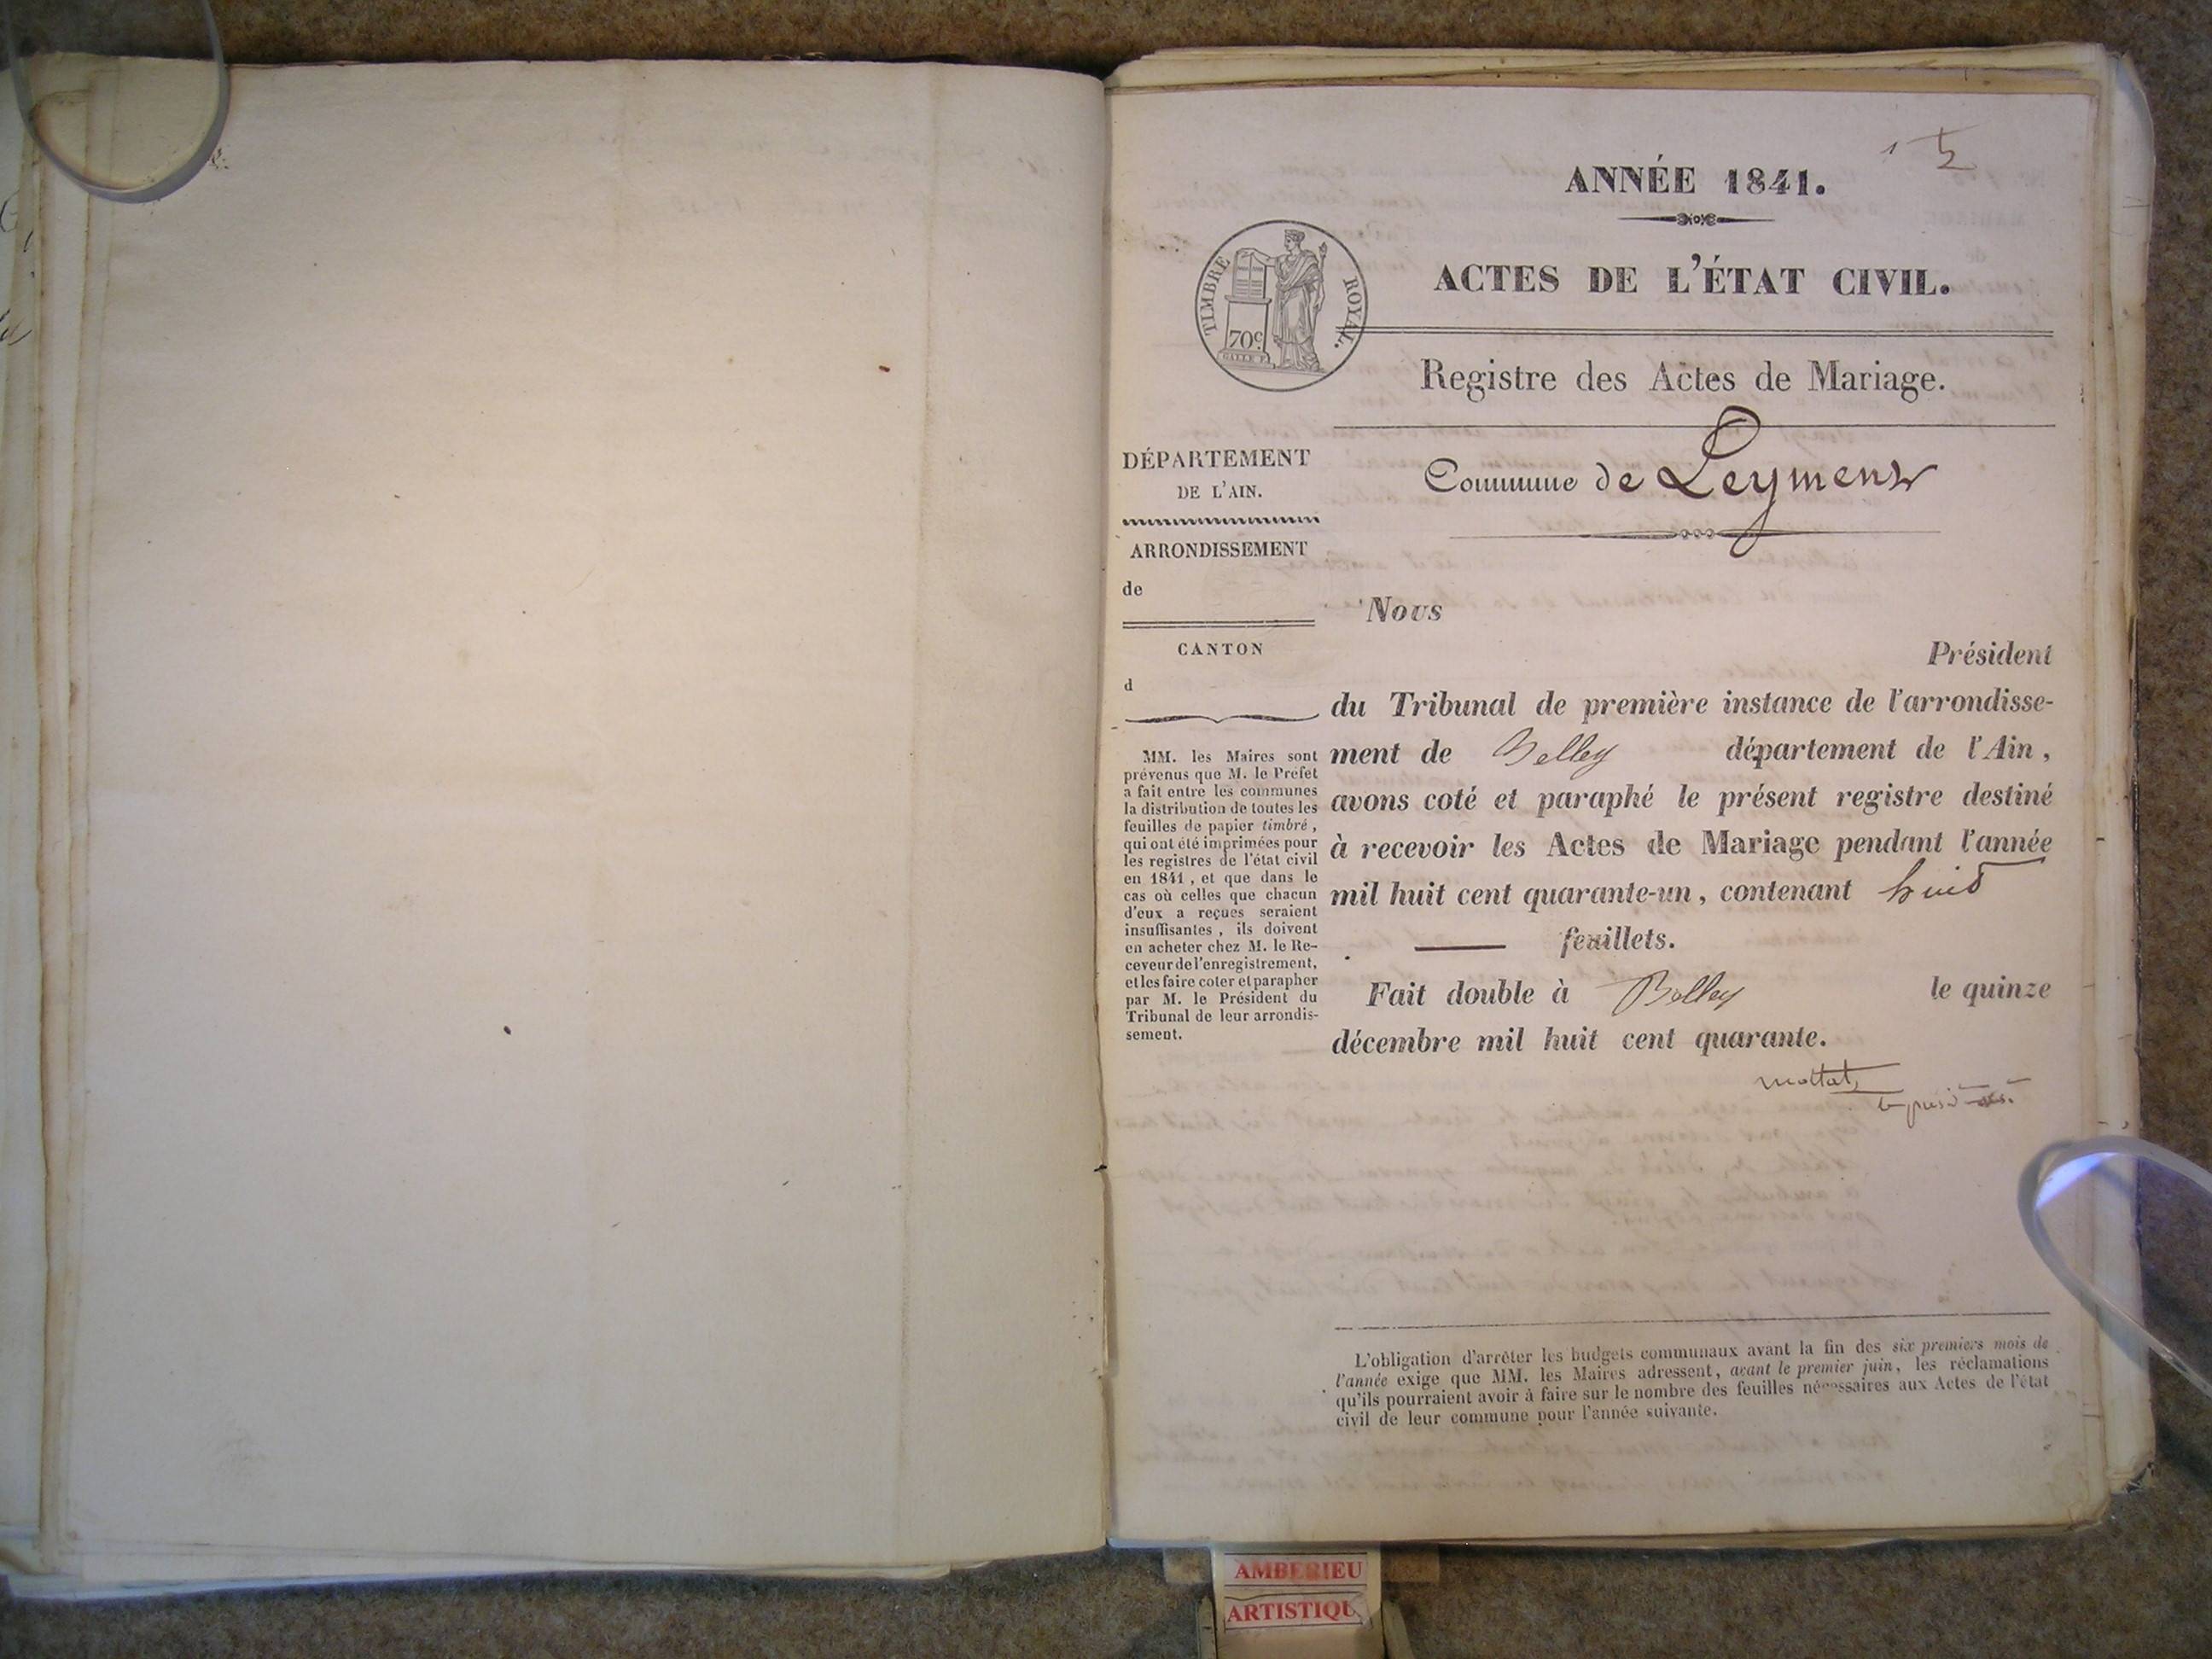 ANNÉE 1841.
ACTES DE L'ÉTAT CIVIL.
TIMBRE ROYAL.
70c
Registre des Actes de Mariage.
Commune de Leyment
DÉPARTEMENT
DE L'AIN.
ARRONDISSEMENT
de
CANTON
d
MM. les Maires sont
prévenus que M. le Préfet
a fait entre les communes
la distribution de toutes les
feuilles de papier timbré,
qui ont été imprimées pour
les registres de l'état civil
en 1841, et que dans le
cas où celles que chacun
d'eux a reçues seraient
insuffisantes, ils doivent
en acheter chez M. le Re-
ceveur de l'enregistrement,
et les faire coter et parapher
par M. le Président du
Tribunal de leur arrondis-
sement.
Nous
Président
du Tribunal de première instance de l'arrondisse-
ment de Belley département de l'Ain,
avons coté et paraphé le présent registre destiné
à recevoir les Actes de Mariage pendant l'année
mil huit cent quarante-un, contenant huit
feuillets.
Fait double à Belley le quinze
décembre mil huit cent quarante.
L'obligation d'arrêter les budgets communaux avant la fin des six premiers mois de
l'année exige que MM. les Maires adressent, avant le premier juin, les réclamations
qu'ils pourraient avoir à faire sur le nombre des feuilles nécessaires aux Actes de l'état
civil de leur commune pour l'année suivante.
AMBERIEU
ARTISTIQU